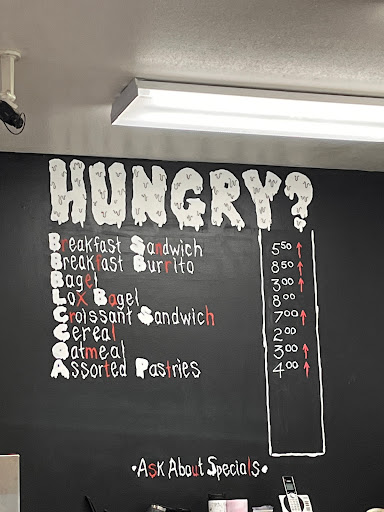 HUNGRY?
Breakfast Sandwich 5.50 ↑
Breakfast Burrito 8.50 ↑
Bagel 3.00 ↑
Lox Bagel 8.00
Croissant Sandwich 7.00 ↑
Cereal 2.00
Oatmeal 3.00 ↑
Assorted Pastries 4.00 ↑
•Ask About Specials•